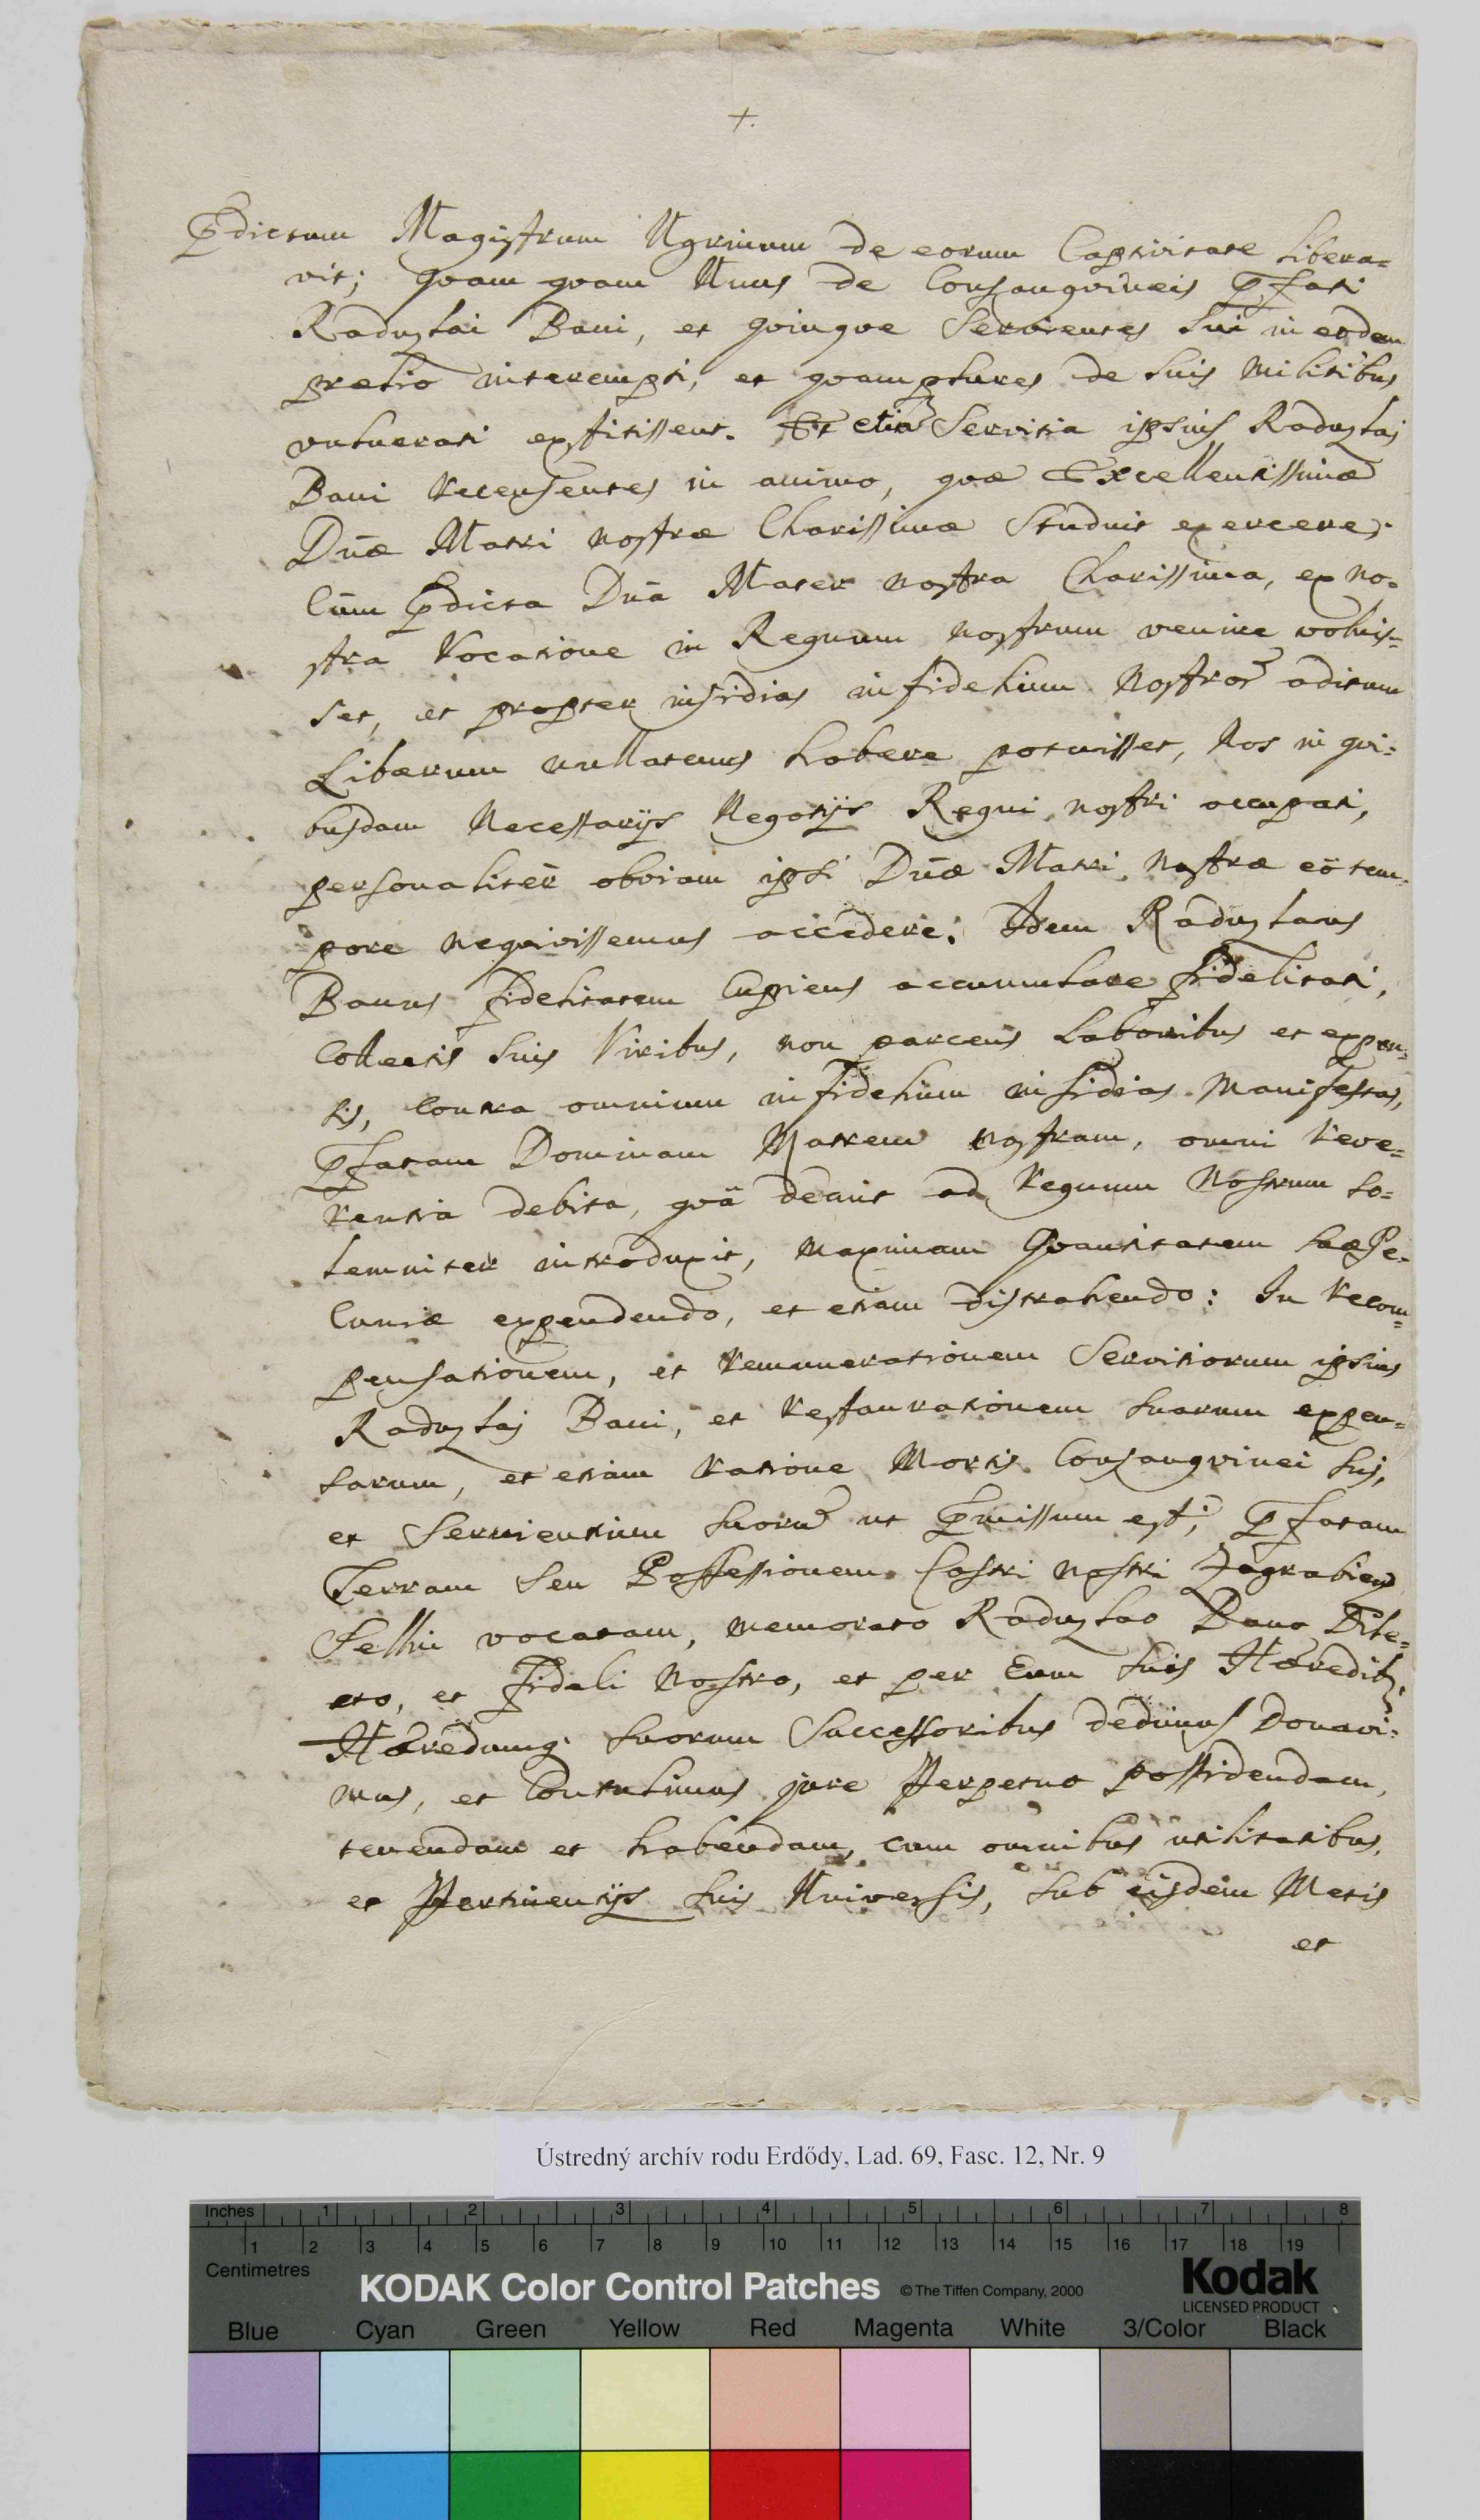 +.
P̄dictum Magistrum Ugrinum de eorum Captivitate libera=
vit; quam quam Unus de Consangvineis p̄fati
Raduzlai Bani, et qvinqve Servientes Sui in eodem
prœlio interempti, et qvamplures de Suis Militibus
vulnerati extitissent. Et etiã Servitia ipsius Raduzlaj
Bani recensentes in animo, qvæ Excellentissimæ
Dnæ Matri nostræ Charissimæ Studuit exercere;
Cùm P̄dicta Dnã Mater nostra Charissima, ex no=
stra Vocatione in Regnum nostrum venire voluis=
set, et propter insidias infidelium Nostror̃ aditum
Liberum nullatenus habere potuisset, Nos in qvi=
busdam Necessarijs Negotijs Regni nostri occupati,
personaliter obviam ipsi Dnæ Matri nostræ eö tem=
pore neqvivissemus accedere: Idem Raduzlaus
Banus fidelitatem Cupiens accumulare fidelitati,
Collectis Suis Viribus, non parcens Laboribus et expen=
sis, Contra omnium infidelium insidias Manifestas,
p̄fatam Dominam Matrem nostram, omni reve=
rentia debita, qvä decuit ad regnum Nostrum so=
lemniter introduxit, maximam Qvantitatem suæ Pe=
cuniæ expendendo, et etiam distrahendo: In recom=
pensationem, et remunerationem Servitiorum ipsius
Raduzlaj Bani, et restaurationem Suarum expen=
sarum, et etiam ratione Mortis Consangvinei Suj,
et Servientium Suorũ ut P̄missum est, p̄fatam
Terram Seu Possessionem Castri nostri Zagrabien
Sellin vocatam, memorato Raduzlao Bano Dile=
cto, et fideli Nostro, et per Eum Suis Hæredib;
Hæredumq; Suorum Successoribus dedimus Donavi=
mus, et Contulimus jure Perpetuo possidendam,
tenendam et habendam, cum omnibus utilitatibus,
et Pertinentijs Suis Universis, Sub eisdem Metis
et
Ústredný archív rodu Erdődy, Lad. 69, Fasc. 12, Nr. 9
Inches 1 2 3 4 5 6 7 8
1 2 3 4 5 6 7 8 9 10 11 12 13 14 15 16 17 18 19
Centimetres
KODAK Color Control Patches © The Tiffen Company, 2000 Kodak
LICENSED PRODUCT
Blue Cyan Green Yellow Red Magenta White 3/Color Black